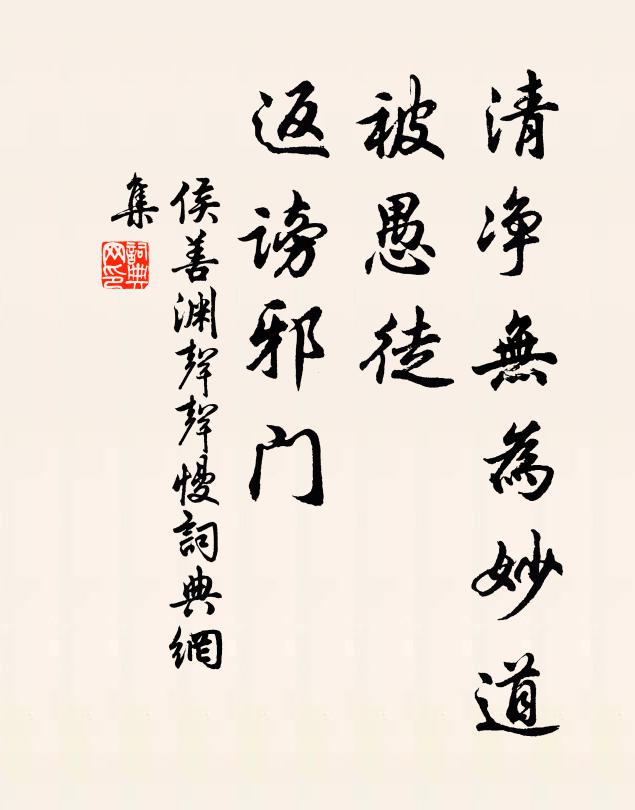 清净無為妙道
被愚徒
返謗邪门
侯善渊聲聲慢詞典網
集
詞典
网印